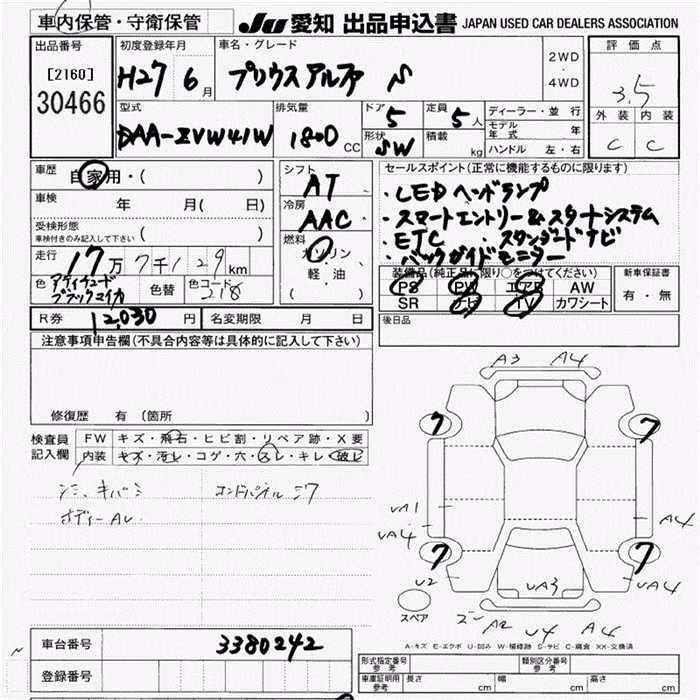 車内保管・守衛保管 JU 愛知 出品申込書 JAPAN USED CAR DEALERS ASSOCIATION
出品番号 初度登録年月 車名・グレード 評価点
[2160] H27 6月 プリウスアルファ S 2WD・4WD 3.5
30466 型式 排気量 ドア 5 定員 5人 ディーラー・並行 外装 内装
モデル年式 年
DAA-ZVW41W 1800 CC 形状 SW 積載 kg ハンドル 左・右 C C
車歴 自家用・( )
シフト AT
セールスポイント(正常に機能するものに限ります)
・LEDヘッドランプ
車検 年 月( 日)
冷房 AAC
・スマートエントリー&スタートシステム
受検形態
車検付きのみ記入して下さい ( )
・ETC ・スタンダードナビ
・バックガイドモニター
走行 17万7千129km
燃料 ガソリン
軽油
( )
色 アティチュードブラックマイカ 色替 色コード 218
装備品(純正品に限り○をつけてください) 新車保証書
PS PW エアB AW 有・無
SR ナビ TV カワシート
R券 12,030円 名変期限 月 日
後日品
注意事項申告欄(不具合内容等は具体的に記入して下さい)
修復歴 有 (箇所
検査員 FW キズ・飛石・ヒビ割・リペア跡・X要
記入欄 内装 キズ・汚レ・コゲ・穴・スレ・キレ・破レ
シミ、キバミ
ボディーAL
A3 A4
7 7
UA1 A4
UA4
7 7
U2 UA3 UA4
スペア A2 U4 A4
A-キズ E-エクボ U-凹み W-補修跡 S-サビ C-腐食 XX-交換済
車台番号 3380242
登録番号
形式指定番号 参考 類別区分番号 参考
車庫証明用 参考 長さ cm 幅 cm 高さ cm